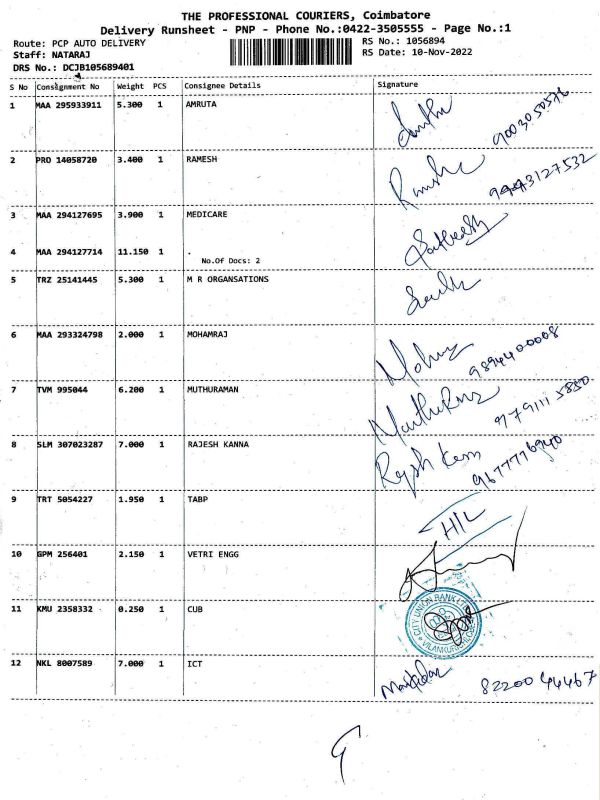 THE PROFESSIONAL COURIERS, Coimbatore
Delivery Runsheet - PNP - Phone No.:0422-3505555 - Page No.:1
Route: PCP AUTO DELIVERY
Staff: NATARAJ
DRS No.: DCJB105689401
RS No.: 1056894
RS Date: 10-Nov-2022
S No Consignment No Weight PCS Consignee Details Signature
1 MAA 295933911 5.300 1 AMRUTA
9003050576
2 PRO 14058720 3.400 1 RAMESH
3 MAA 294127695 3.900 1 MEDICARE
4 MAA 294127714 11.150 1 .
No.Of Docs: 2
5 TRZ 25141445 5.300 1 M R ORGANSATIONS
6 MAA 293324798 2.000 1 MOHAMRAJ
9894400008
7 TVM 995044 6.200 1 MUTHURAMAN
9791115850
8 SLM 307023287 7.000 1 RAJESH KANNA
9677776940
9 TRT 5054227 1.950 1 TABP
H/L
10 GPM 256401 2.150 1 VETRI ENGG
11 KMU 2358332 0.250 1 CUB
CITY UNION BANK
12 NKL 8007589 7.000 1 ICT
8220044467